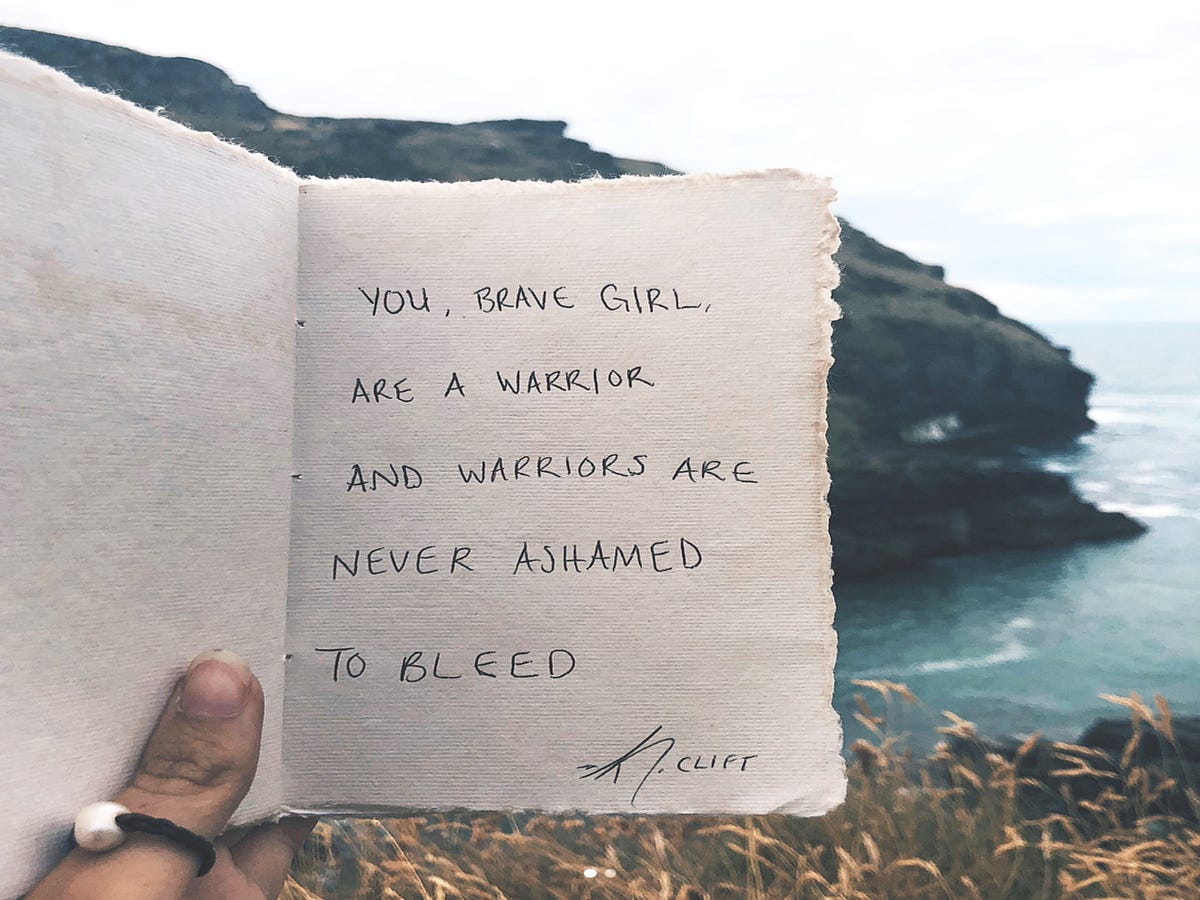 YOU, BRAVE GIRL,
ARE A WARRIOR
AND WARRIORS ARE
NEVER ASHAMED
TO BLEED
CLIFT